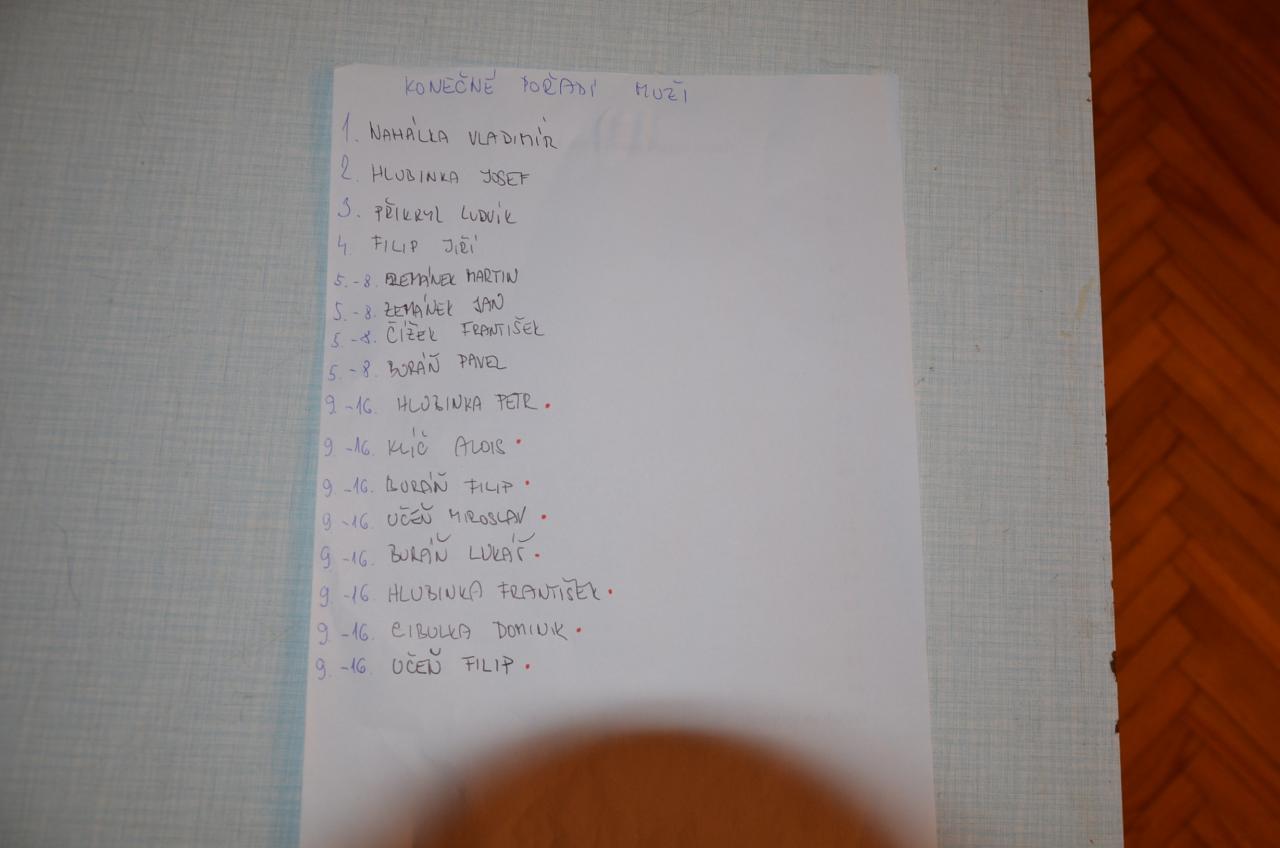 KONEČNÉ POŘADÍ MUŽI
1. NAHÁLKA VLADIMÍR
2. HLUBINKA JOSEF
3. PŘIKRYL LUDVÍK
4. FILIP JIŘÍ
5.-8. ZEMÁNEK MARTIN
5.-8. ZEMÁNEK JAN
5.-8. ČÍŽEK FRANTIŠEK
5.-8. BURÁŇ PAVEL
9.-16. HLUBINKA PETR .
9.-16. KLÍČ ALOIS .
9.-16. BURÁŇ FILIP .
9.-16. UČEŇ MIROSLAV .
9.-16. BURÁŇ LUKÁŠ .
9.-16. HLUBINKA FRANTIŠEK .
9.-16. CIBULKA DOMINIK .
9.-16. UČEŇ FILIP .